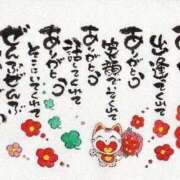 出逢えてくれて
ありがとう
笑顔でいてくれて
ありがとう
話してくれて
ありがとう
そこにいてくれて
ぜんぶぜんぶ